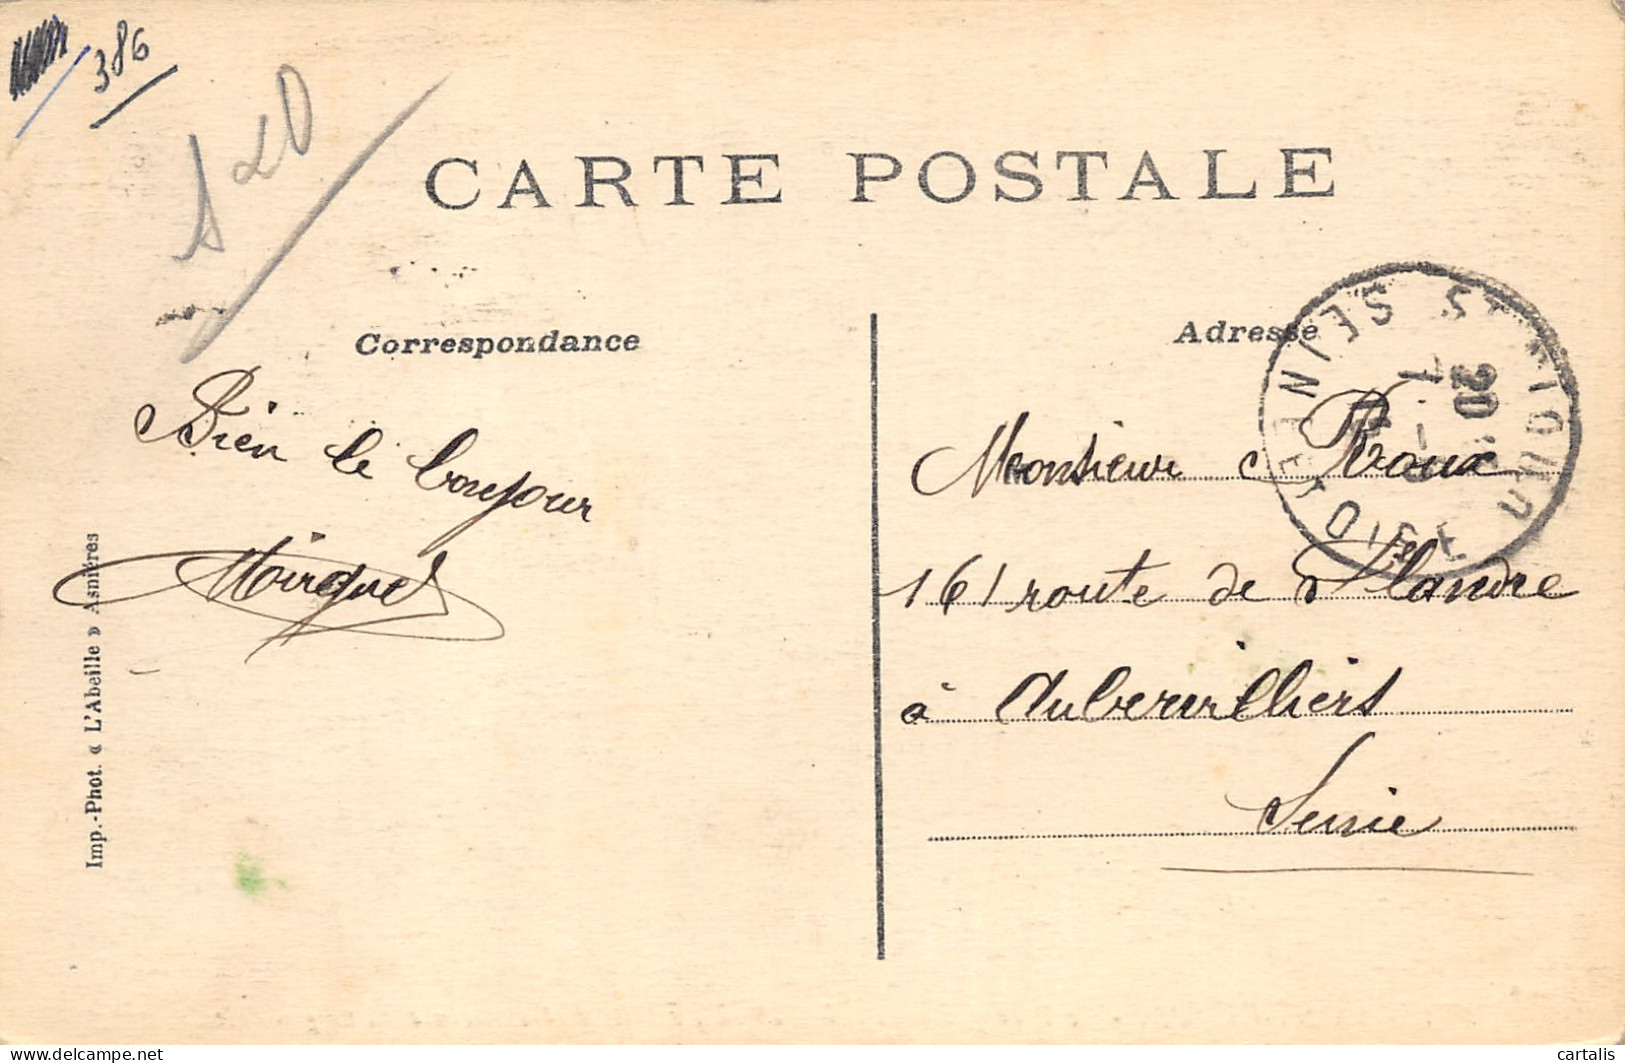 386
CARTE POSTALE
Correspondance
Adresse
Bien le bonjour
Monsieur Roux
161 route de Flandre
à Aubervilliers
Seine
SEINE ET OISE
20
Imp.-Phot. « L'Abeille » Asnières
delcampe.net
cartalis